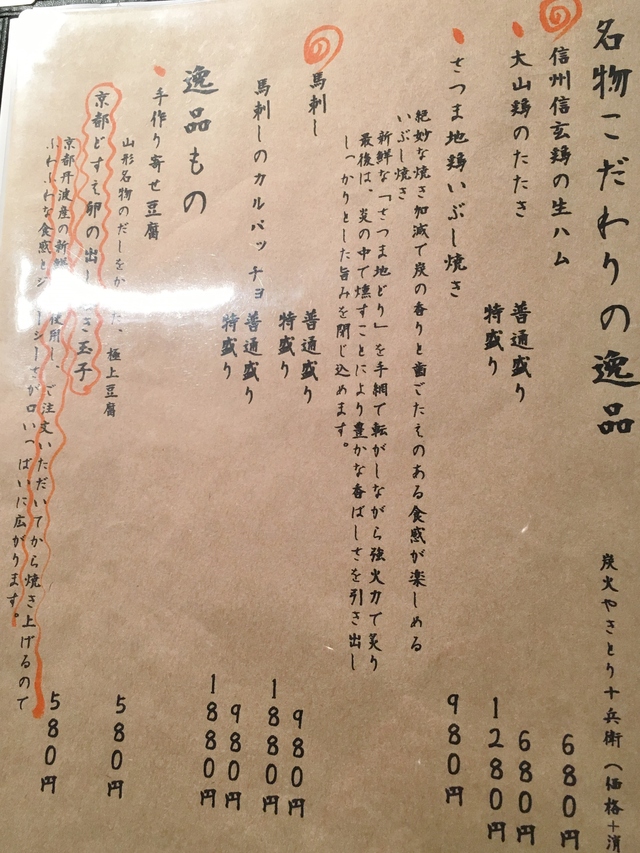 名物こだわりの逸品
炭火やきとり十兵衛（価格＋消
信州信玄鶏の生ハム
680円
大山鶏のたたき
普通盛り 680円
特盛り 1280円
さつま地鶏いぶし焼き
980円
絶妙な焼き加減で炭の香りと歯ごたえのある食感が楽しめる
いぶし焼き
新鮮な「さつま地どり」を手網で転がしながら強火力で炙り
最後は、炎の中で燻すことにより豊かな香ばしさを引き出し
しっかりとした旨みを閉じ込めます。
馬刺し
普通盛り 980円
特盛り 1880円
馬刺しのカルパッチョ
普通盛り 980円
特盛り 1880円
逸品もの
手作り寄せ豆腐
580円
山形名物のだしをか た、極上豆腐
京都どすえ卵の出し き玉子
580円
京都丹波産の新鮮 使用し、ご注文いただいてから焼き上げるので
ふわふわな食感とジューシーさが口いっぱいに広がります。